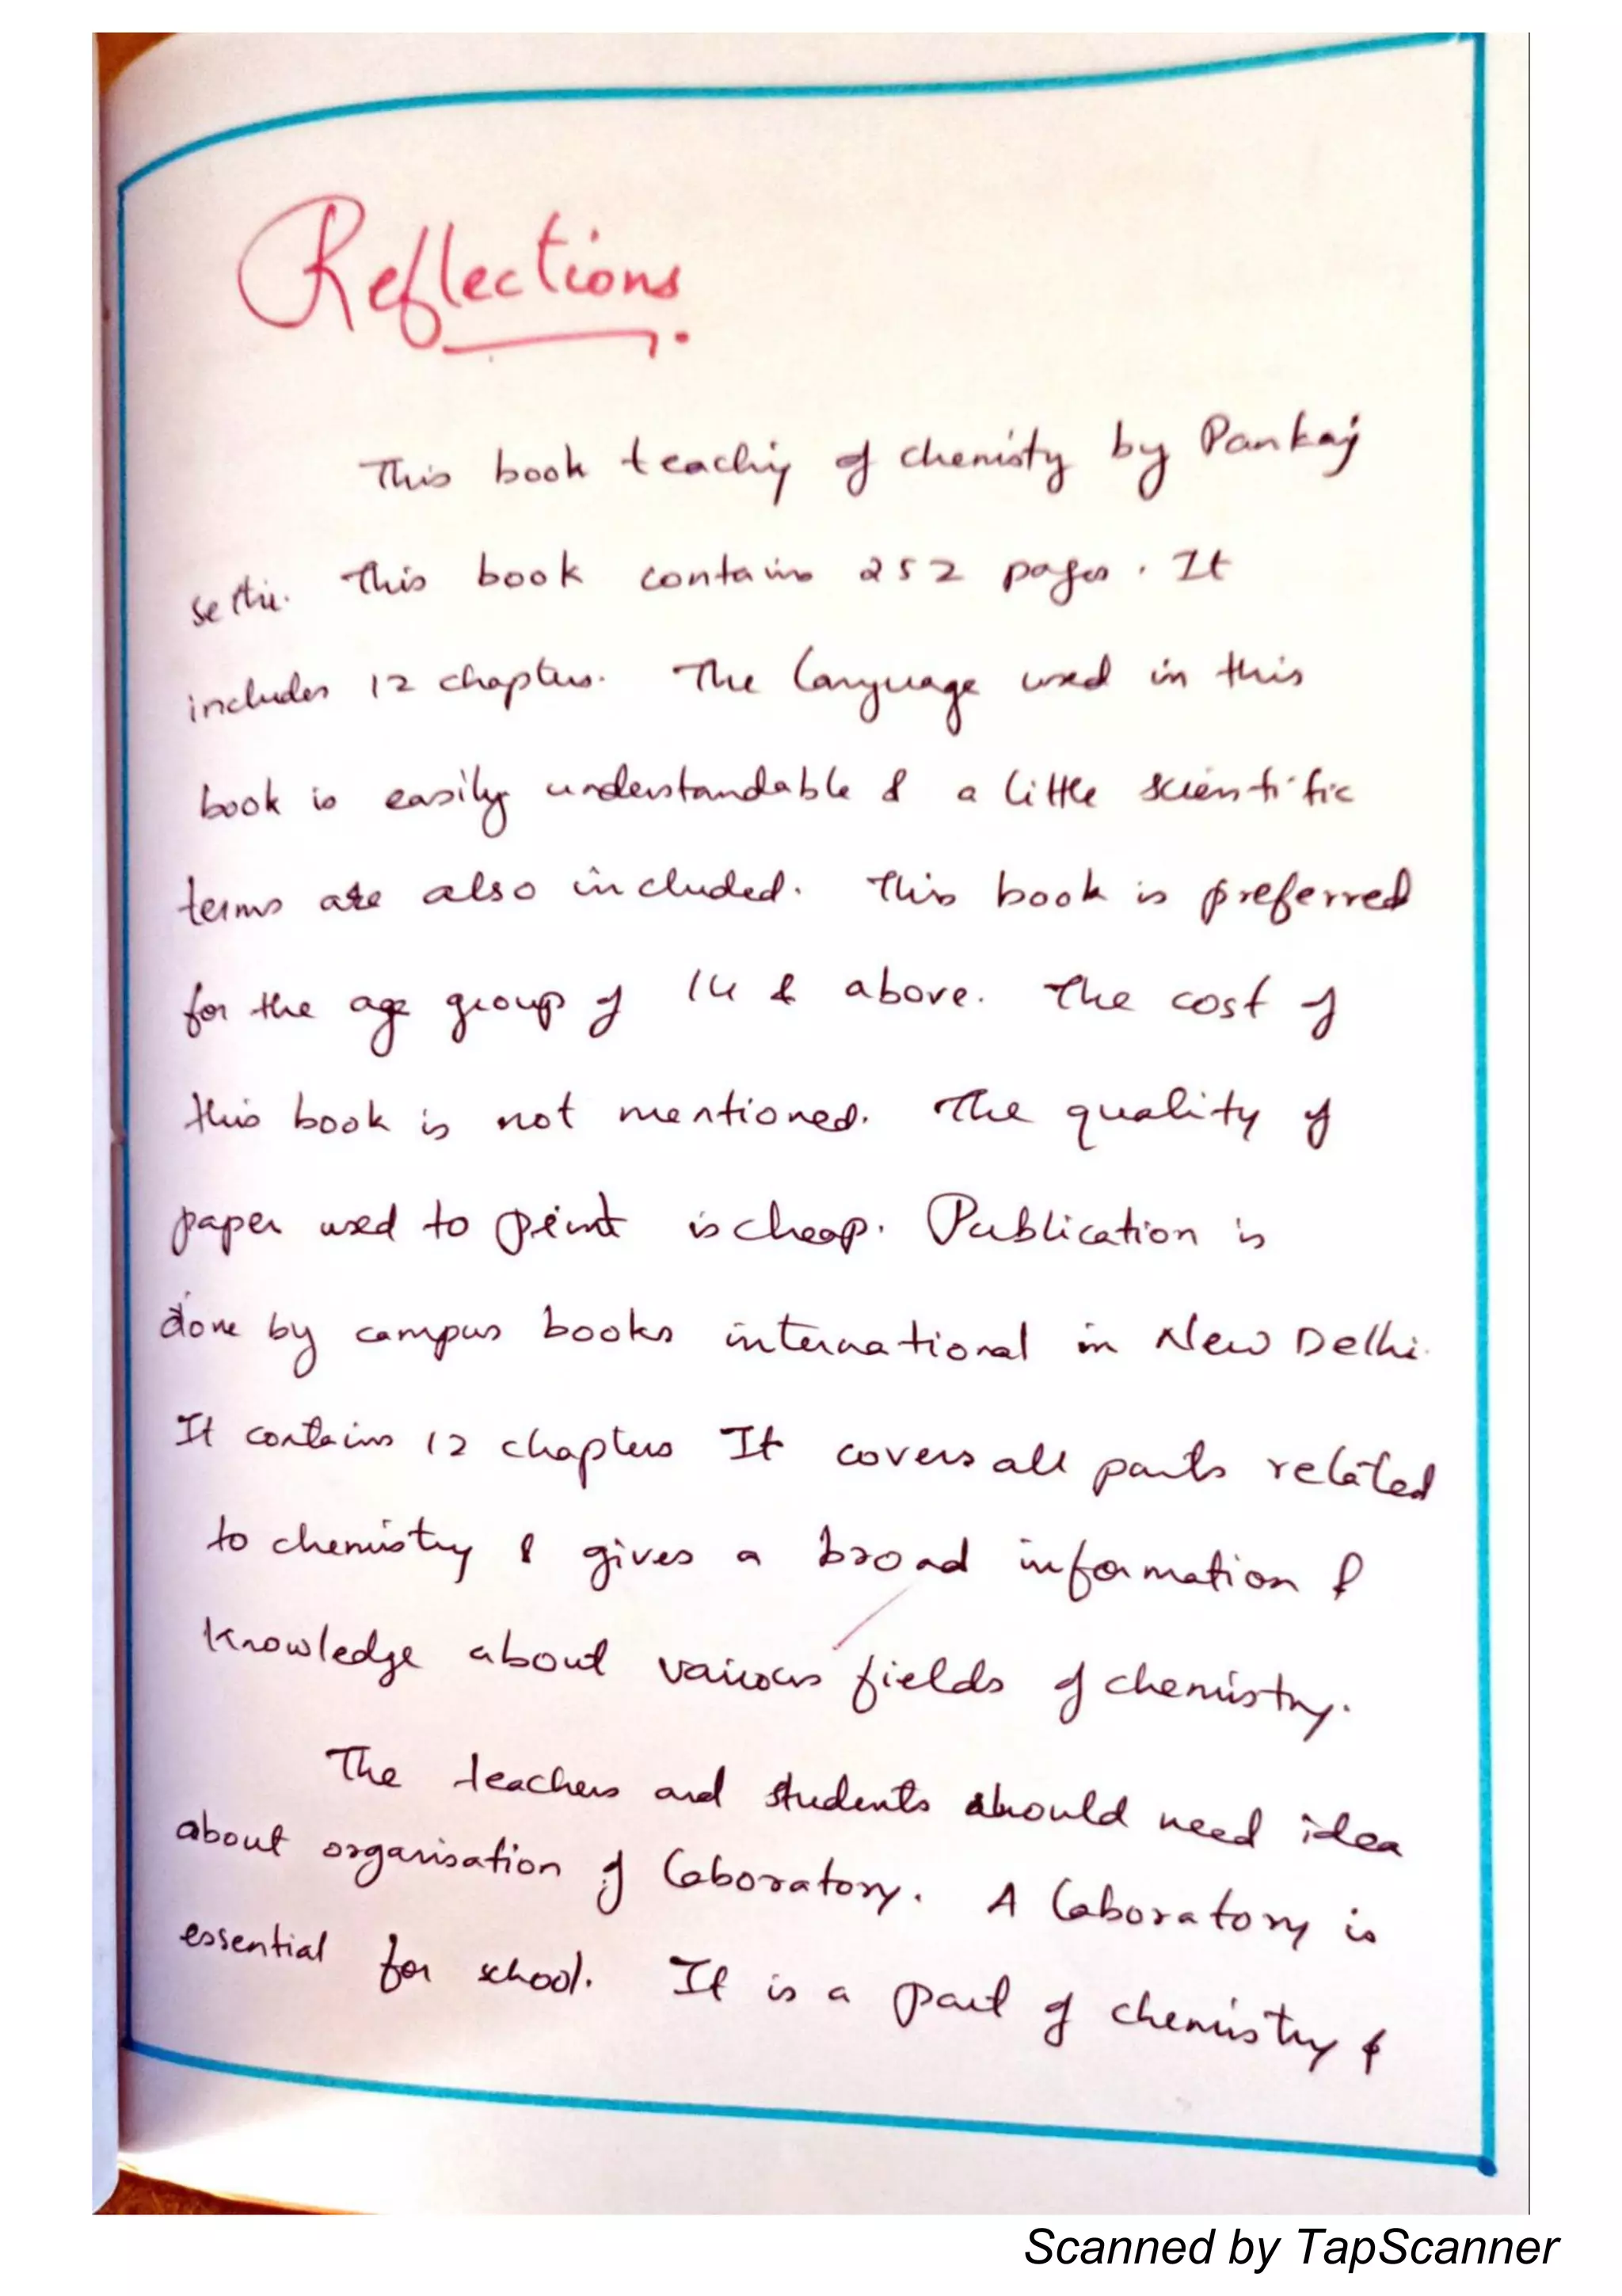 Reflections.
This book teaching of chemisty by Pankaj
sethi. This book contains 252 pages. It
includes 12 chapters. The language used in this
book is easily understandable & a little scientific
terms are also included. This book is preferred
for the age group of 14 & above. The cost of
this book is not mentioned. The quality of
paper used to print is cheap. Publication is
done by campus books international in New Delhi.
It contains 12 chapters It covers all parts related
to chemistry & gives a broad information &
knowledge about various fields of chemistry.
The teachers and students should need idea
about organisation of laboratory. A laboratory is
essential for school. It is a part of chemistry &
Scanned by TapScanner